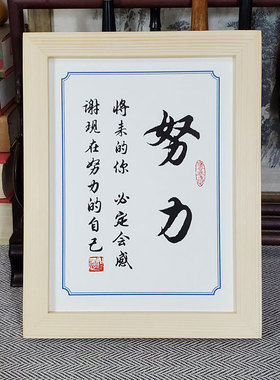 努力
将来的你 必定会感
谢现在努力的自己